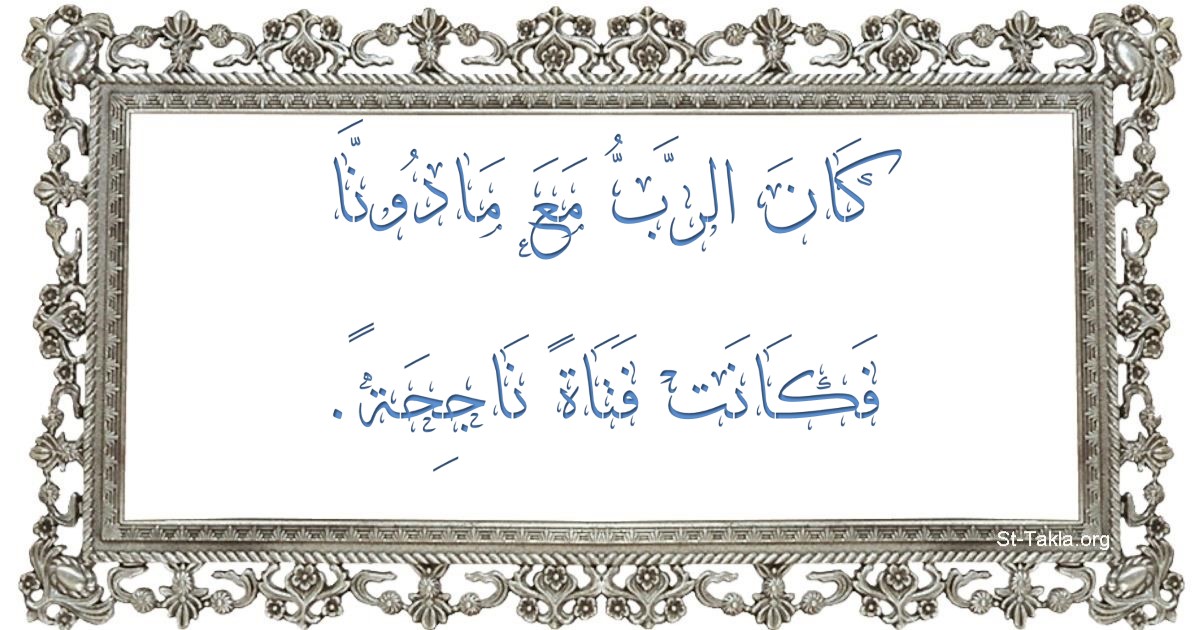 كَانَ الرَّبُّ مَعَ مَادُونَّا
فَكَانَتْ فَتَاةً نَاجِحَةً.
St-Takla.org